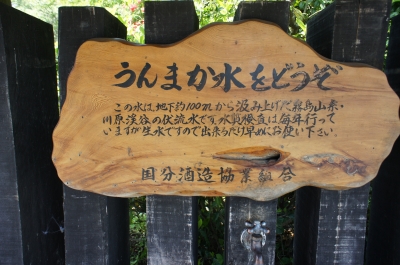 うんまか水をどうぞ
この水は、地下約100mから汲み上げた霧島山系・
川原渓谷の伏流水です。水質検査は毎年行って
いますが生水ですので出来るだけ早めにお使い下さい。
国分酒造協業組合